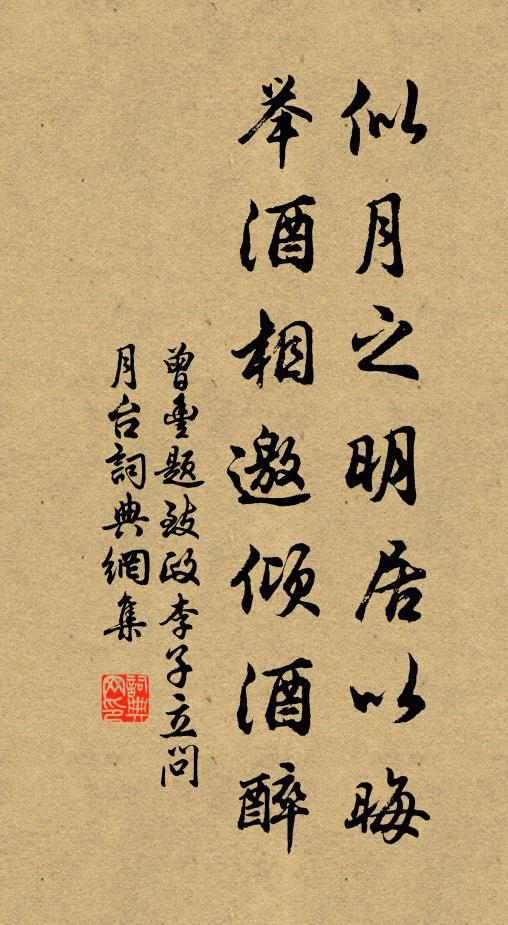 似月之明居以晦
举酒相邀倾酒醉
曾豊题致政李子立问
月台詞典網集
詞典网印